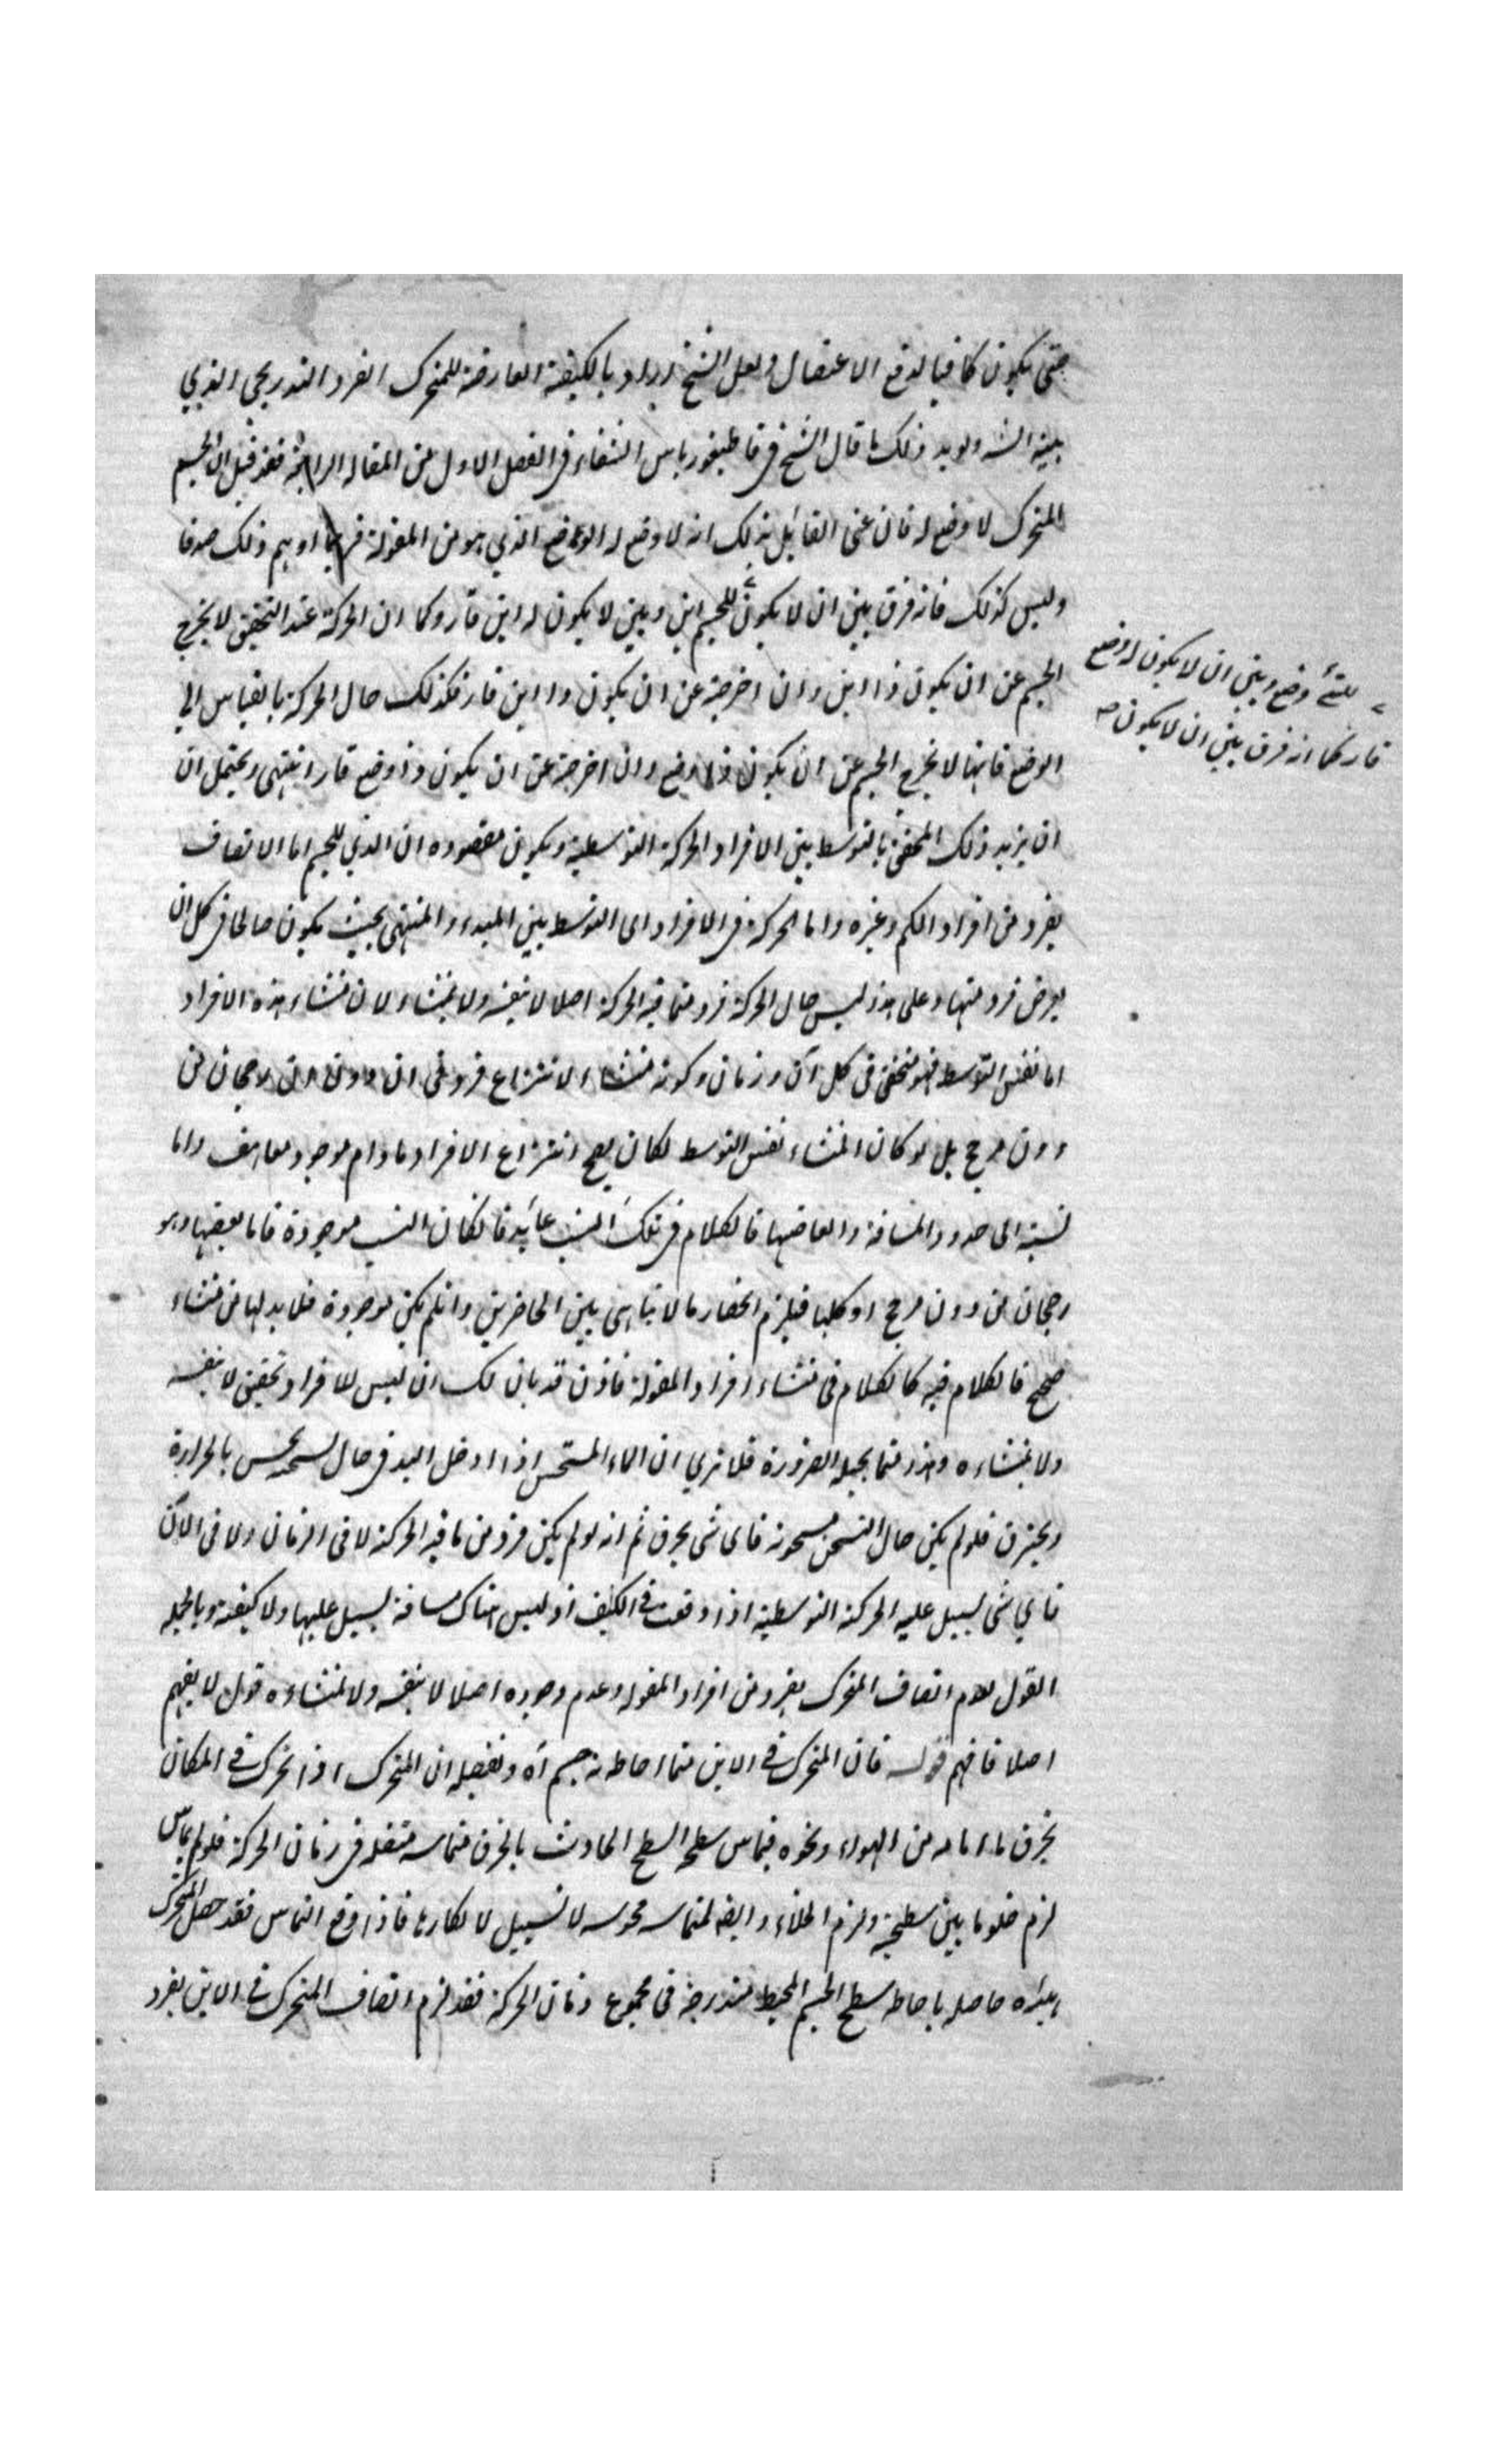 حتى يكون كافيا لدفع الاعضال ولعل الشيخ اراد بالكيفية العارضة للمتحرك الفرد التدريجي الذي
بينه الشه ويويد ذلك ما قال الشيخ في قاطيغورياس الشفاء في الفصل الاول من المقالة الرابعة فقد قيل ان الجسم
المتحرك لا وضع له فان عنى القائل بذلك انه لا وضع له الوضع الذي هو من المقولة فربما اوهم ذلك صدقا
وليس كذلك فانه فرق بين ان لا يكون للجسم اين وبين لا يكون له اين قار وكما ان الحركة عند التحقيق لا يخرج
الجسم عن ان يكون ذا اين وان اخرجته عن ان يكون ذا اين قار فكذلك حال الحركة بالقياس الي
الوضع فانها لا يخرج الجسم عن ان يكون ذا وضع وان اخرجته عن ان يكون ذا وضع قار انتهى ويحتمل ان
ان يريد ذلك المحقق بالتوسط بين الافراد الحركة التوسطية ويكون مقصوده ان الذي للجسم اما الاتصاف
بفرد من افراد الكم وغيره واما الحركة في الافراد اى التوسط بين المبدء والمنتهى بحيث يكون صالحا في كل ان
يعرض فرد منها وعلى هذا ليس حال الحركة فرد مما فيه الحركة اصلا لا بنفسه ولا بمنشاء لان منشاء هذه الافراد
اما نفس التوسط فهو متحقق في كل آن وزمان وكونه منشاء لانتزاع فرد في ان دون ان رجحان من
دون مرجح بل لو كان المنشاء نفس التوسط لكان يصح انتزاع الافراد مادام موجودا هف واما
نسبته الى حدود المسافة وابعاضها فالكلام في تلك النسب عائد فان كان النسب موجودة فاما بعضها وهو
رجحان من دون مرجح او كلها فيلزم انحصار ما لا يتناهى بين الحاضرين وان لم يكن موجودة فلا بد لها من منشاء
صحيح فالكلام فيه كالكلام في منشاء افراد المقولة فاذن قد بان لك ان ليس للافراد تحقق لا بنفسه
ولا بمنشاءه وهذا مما يحيله الضرورة فلا تري ان الماء المستحن اذا ادخل اليد في حال يحس بالحرارة
ويحترق فلو لم يكن حال التسخن سخونة فاى شى يحرق ثم انه لو لم يكن فرد من ما فيه الحركة لا في الزمان ولا في الان
فاي شى يسيل عليه الحركة التوسطية اذا وقعت في الكيف اذ ليس هناك مسافة يسيل عليها ولا كيفية وبالجملة
القول بعدم اتصاف المتحرك بفرد من افراد المقولة وعدم وجوده اصلا لا بنفسه ولا بمنشاءه قول لا يفهم
اصلا فافهم قوله فان المتحرك في الاين مما احاط به جسم آه وتفصيله ان المتحرك اذا تحرك في المكان
يخرق ما امامه من الهواء ونحوه فيماس سطحه السطح الحادث بالخرق مماسة متصلة في زمان الحركة فلو لم يماس
لزم خلو ما بين سطحيه ولزم الخلاء وايضا المماسة محسوسة لا سبيل لانكارها فاذا وقع التماس فقد حصل للمتحرك
هيئة حاصلة باحاطة سطح الجسم المحيط متدرجة في مجموع زمان الحركة فقد لزم اتصاف المتحرك في الاين بفرد
للشئ وضع وبين ان لا يكون له وضع
قار كما انه فرق بين ان لا يكون صح